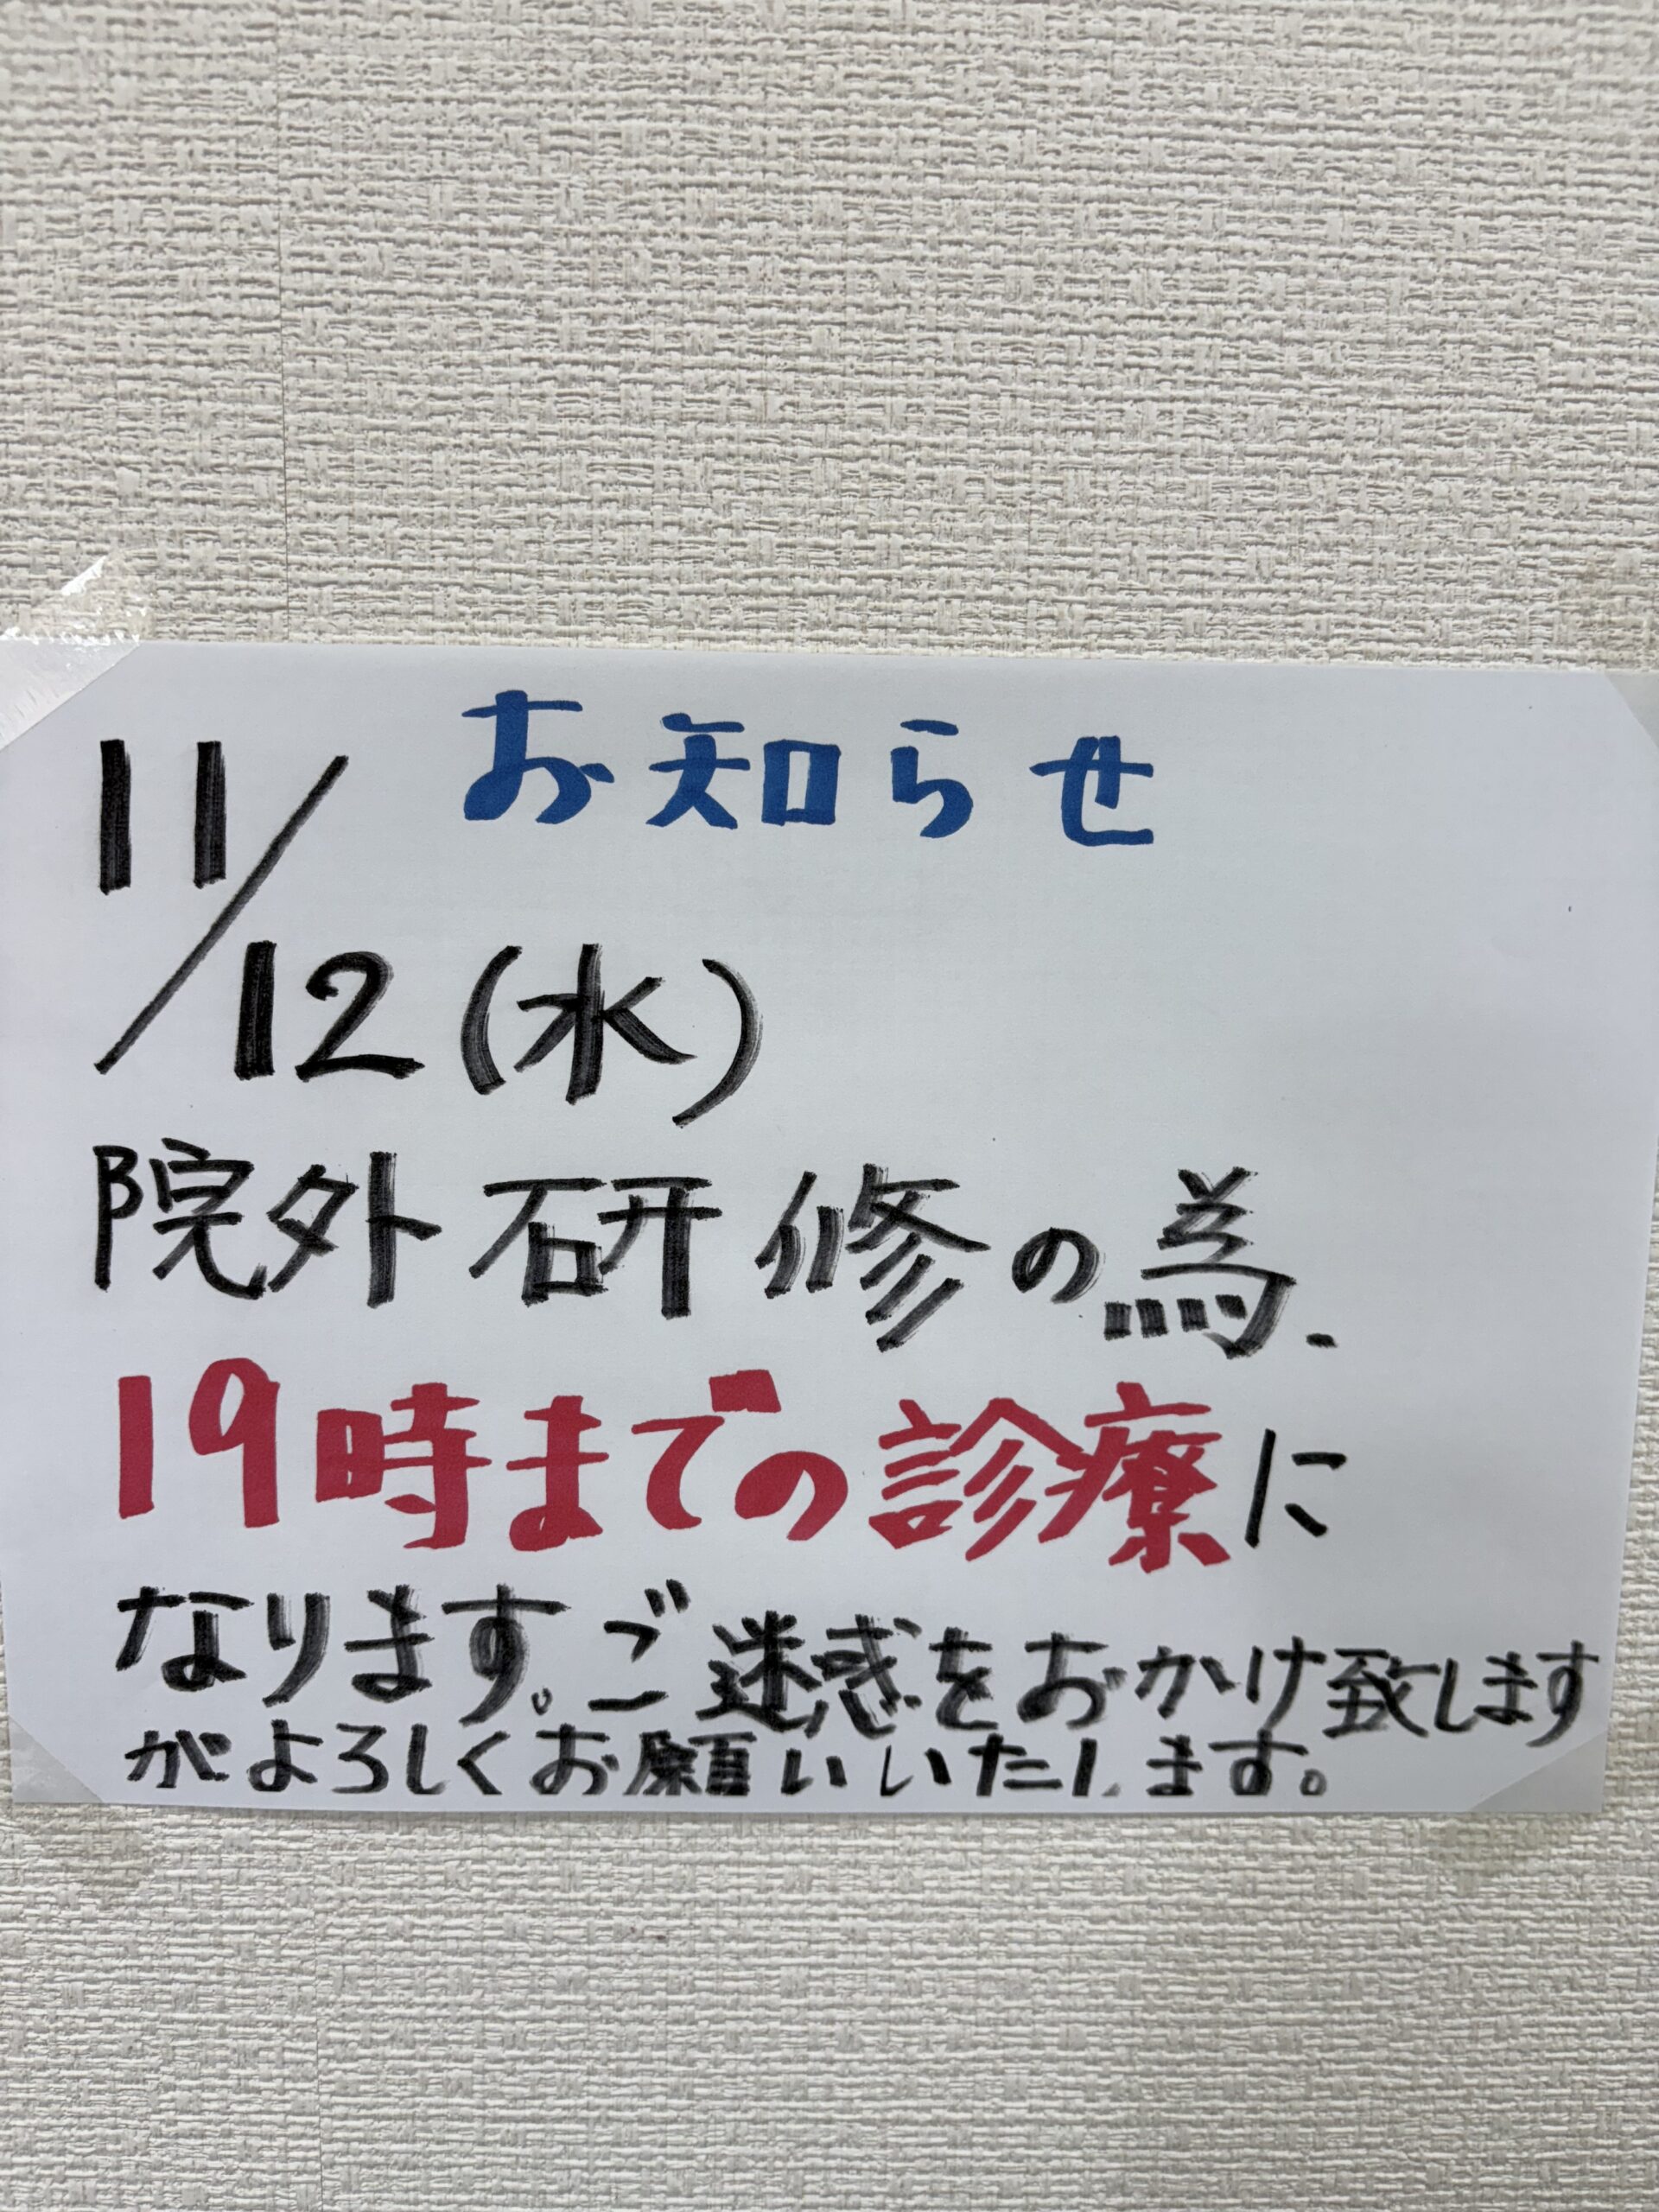 お知らせ
11/12(水)
院外研修の為、
19時までの診療に
なります。ご迷惑をおかけ致します
がよろしくお願いいたします。